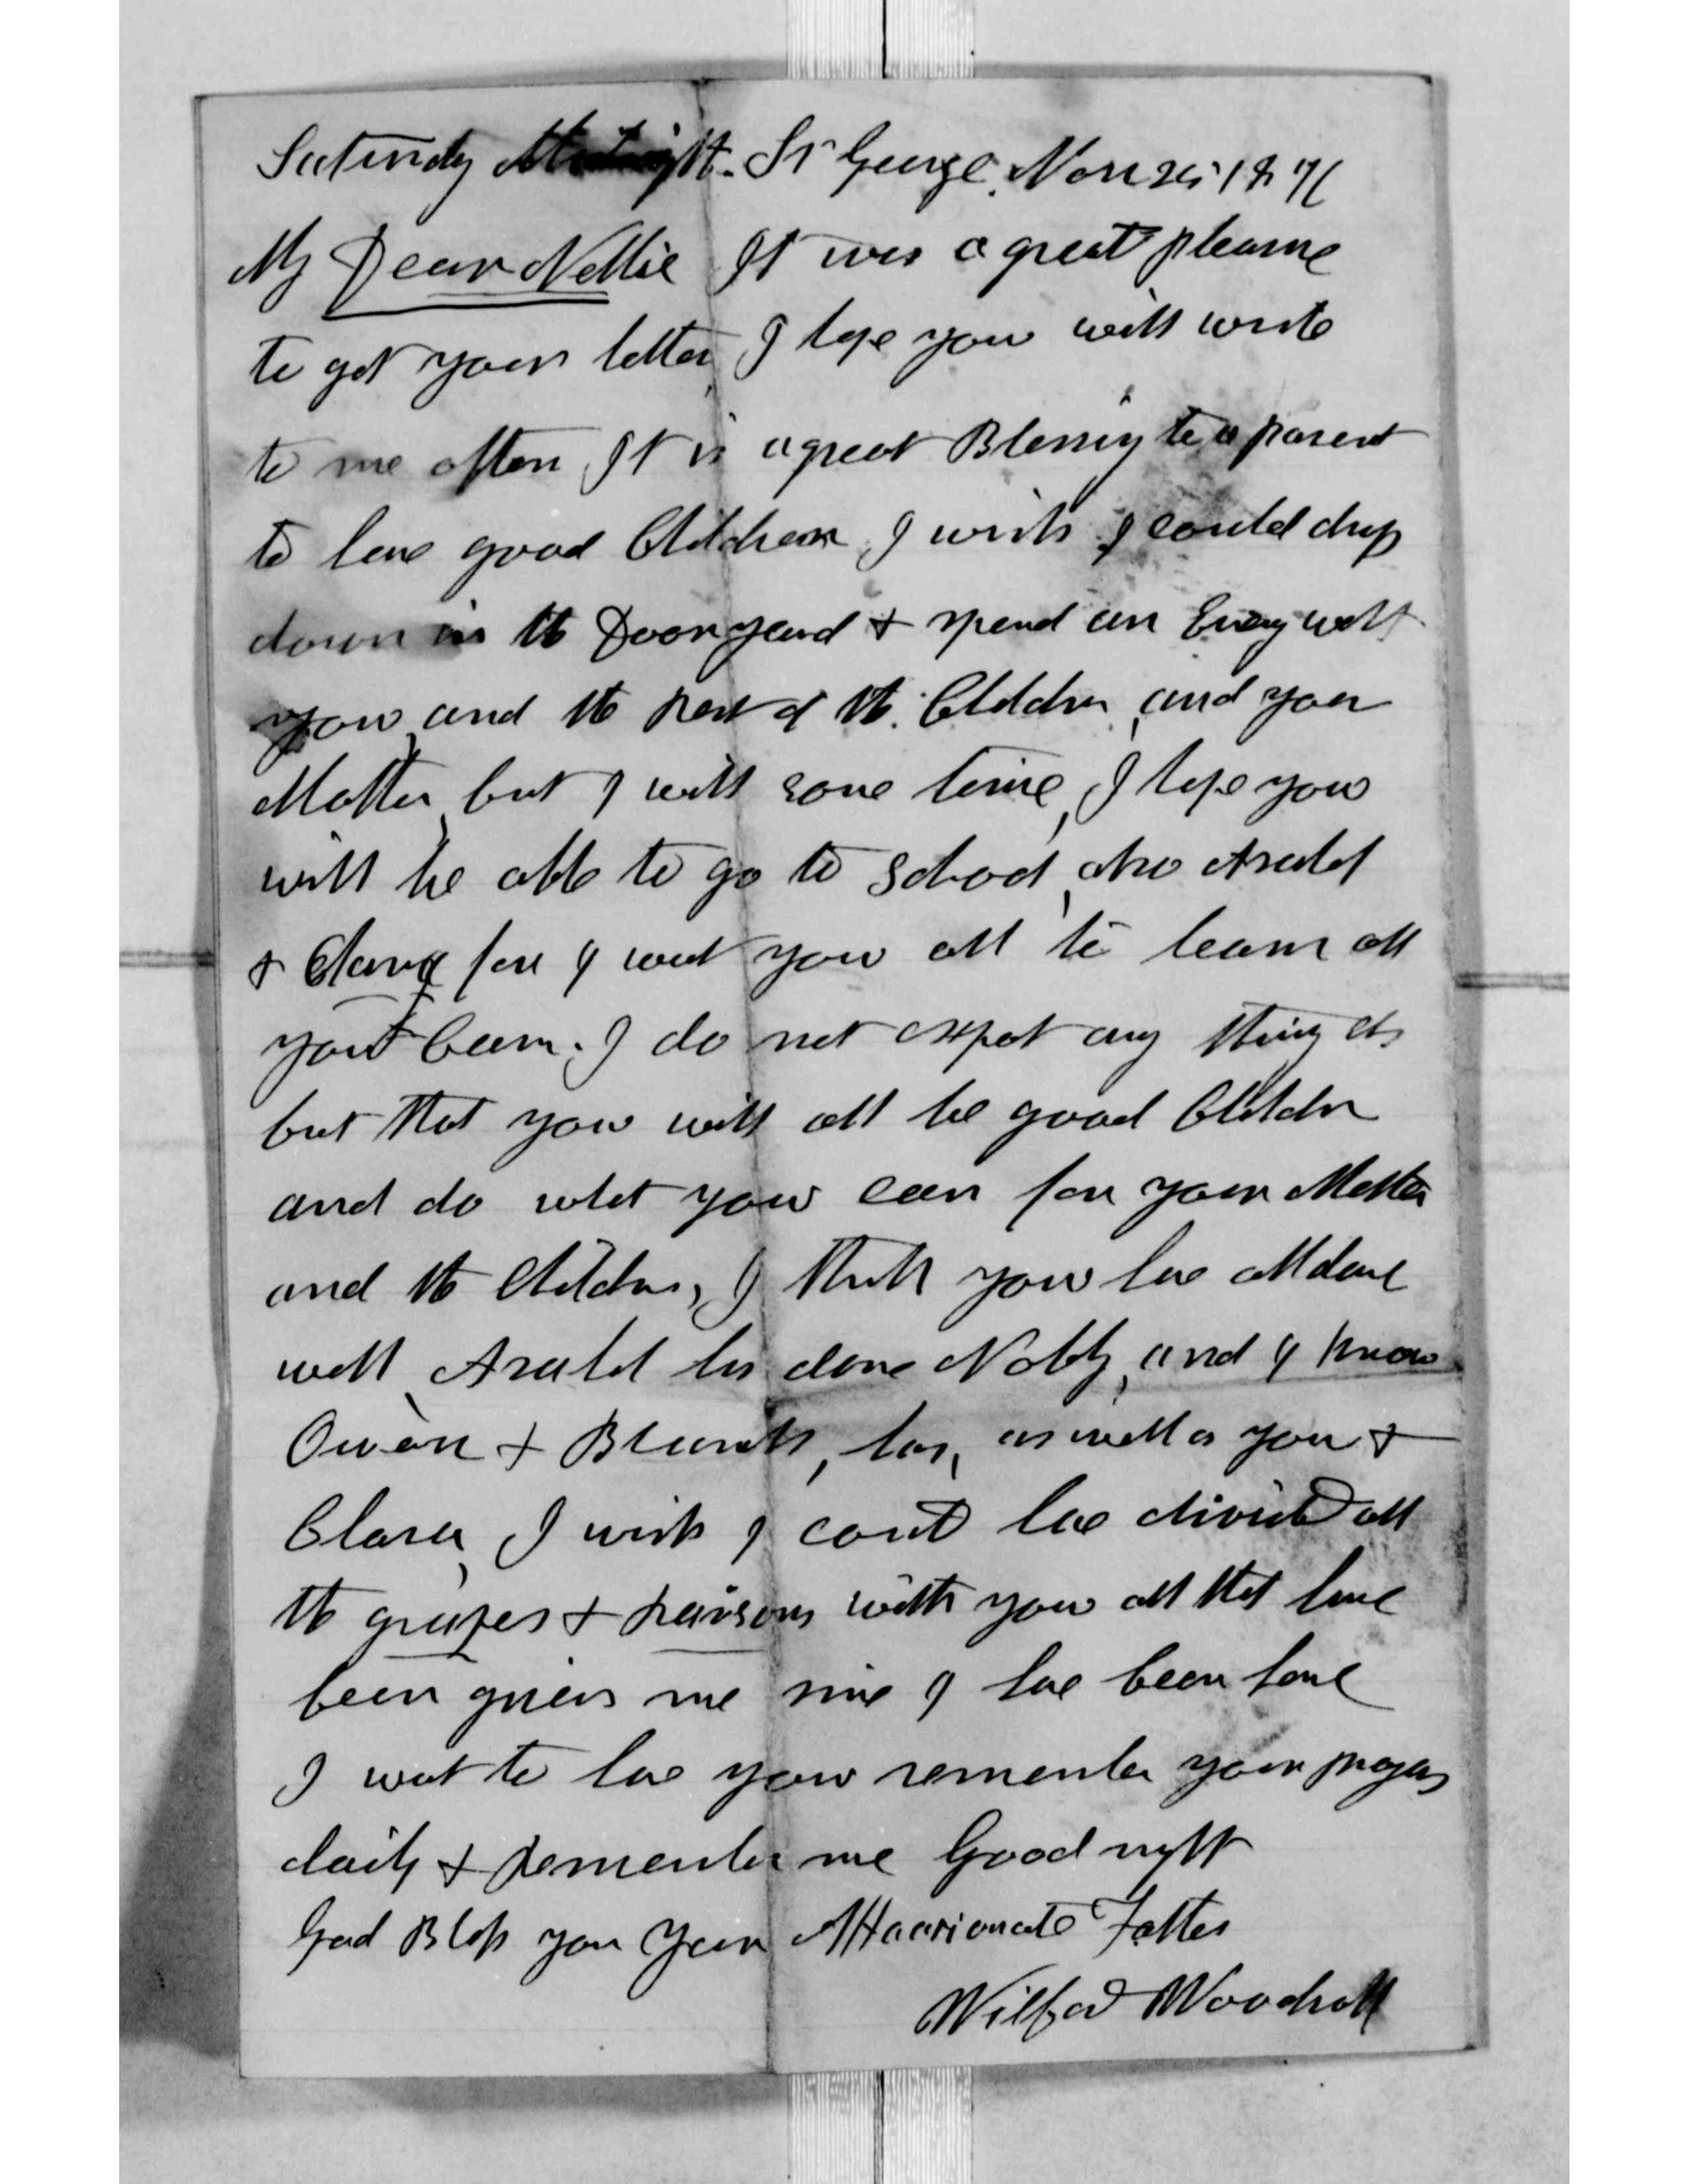 Saturday Midnight. St George. Nov 25 1876
My Dear Nellie It was a great pleasure
to get your letter, I hope you will write
to me often It is a great Blessing to a parent
to have good Children I wish I could drop
down in the Dooryard & spend an Evening with
you, and the rest of the Children, and your
Mother, but I will some time, I hope you
will be able to go to School, also Asahel
& Clara for I want you all to learn all
you Can. I do not expect any thing els
but that you will all be good Children
and do what you can for your Mother
and the Children, I think you have all done
well, Asahel has done Nobly, and I know
Owen & Blanch, has, as well as you &
Clara, I wish I could have divided all
the grapes & raisons with you all that have
been given me since I have been here
I want to have you remember your prayers
daily & remember me Good night
God Bless you Your Affectionate Father
Wilford Woodruff